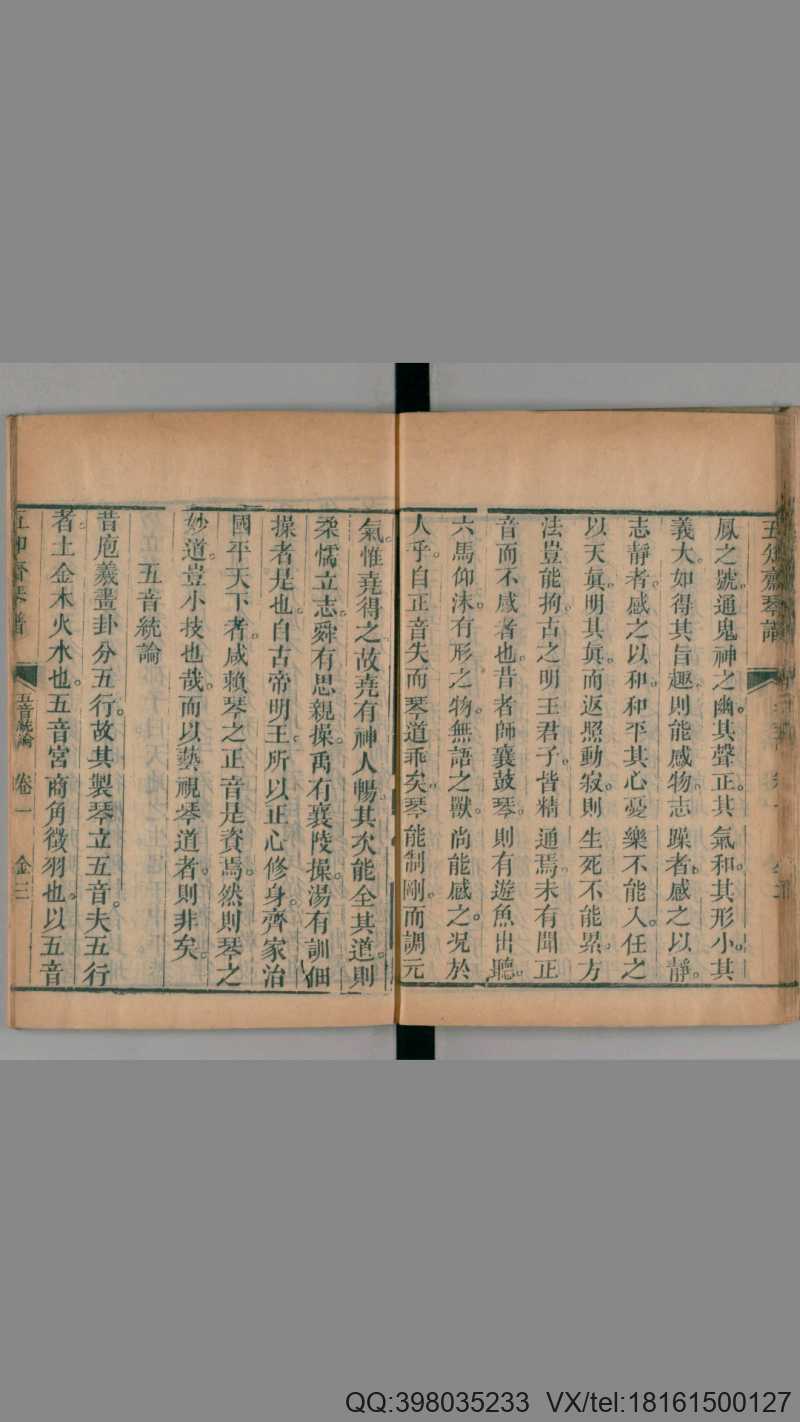 五知齋琴譜
鳳之號。通鬼神之幽。其聲正。其氣和。其形小。其
義大。如得其旨趣。則能感物。志躁者。感之以靜。
志靜者。感之以和。和平其心。憂樂不能入。任之
以天真。明其真。而返照動寂。則生死不能累。方
法豈能拘。古之明王君子。皆精通焉。未有聞正
音而不感者也。昔者師襄鼓琴。則有遊魚出聽。
六馬仰沫。有形之物。無語之獸。尚能感之。况於
人乎。自正音失而琴道乖矣。琴能制剛。而調元
氣。惟堯得之。故堯有神人暢。其次能全其道。則
柔懦立志。舜有思親操。禹有襄陵操。湯有訓佃
操者是也。自古帝明王。所以正心修身。齊家治
國平天下者。咸賴琴之正音是資焉。然則琴之
妙道。豈小技也哉。而以藝視琴道者。則非矣。
五音統論
昔庖羲畫卦分五行。故其製琴立五音。夫五行
者。土金木火水也。五音宮商角徵羽也。以五音
五知齋琴譜 五音統論 卷一 金三
QQ:398035233 VX/tel:18161500127